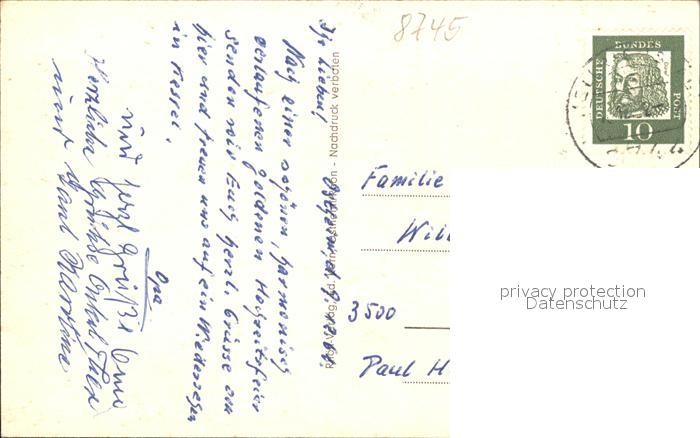 8745
DEUTSCHE
BUNDES
POST
10
Ihr Lieben!
Nach einer schönen, harmonisch
verlaufenen Goldenen Hochzeitsfeier
senden wir Euch herzl. Grüsse von
hier und freuen uns auf ein Wiedersehen
in Kessel.
Opa
und herzl Grüße Oma
Herzliche Grüße Onkel
und Tante
Nachdruck verboten
Familie
3500
Paul H
privacy protection
Datenschutz